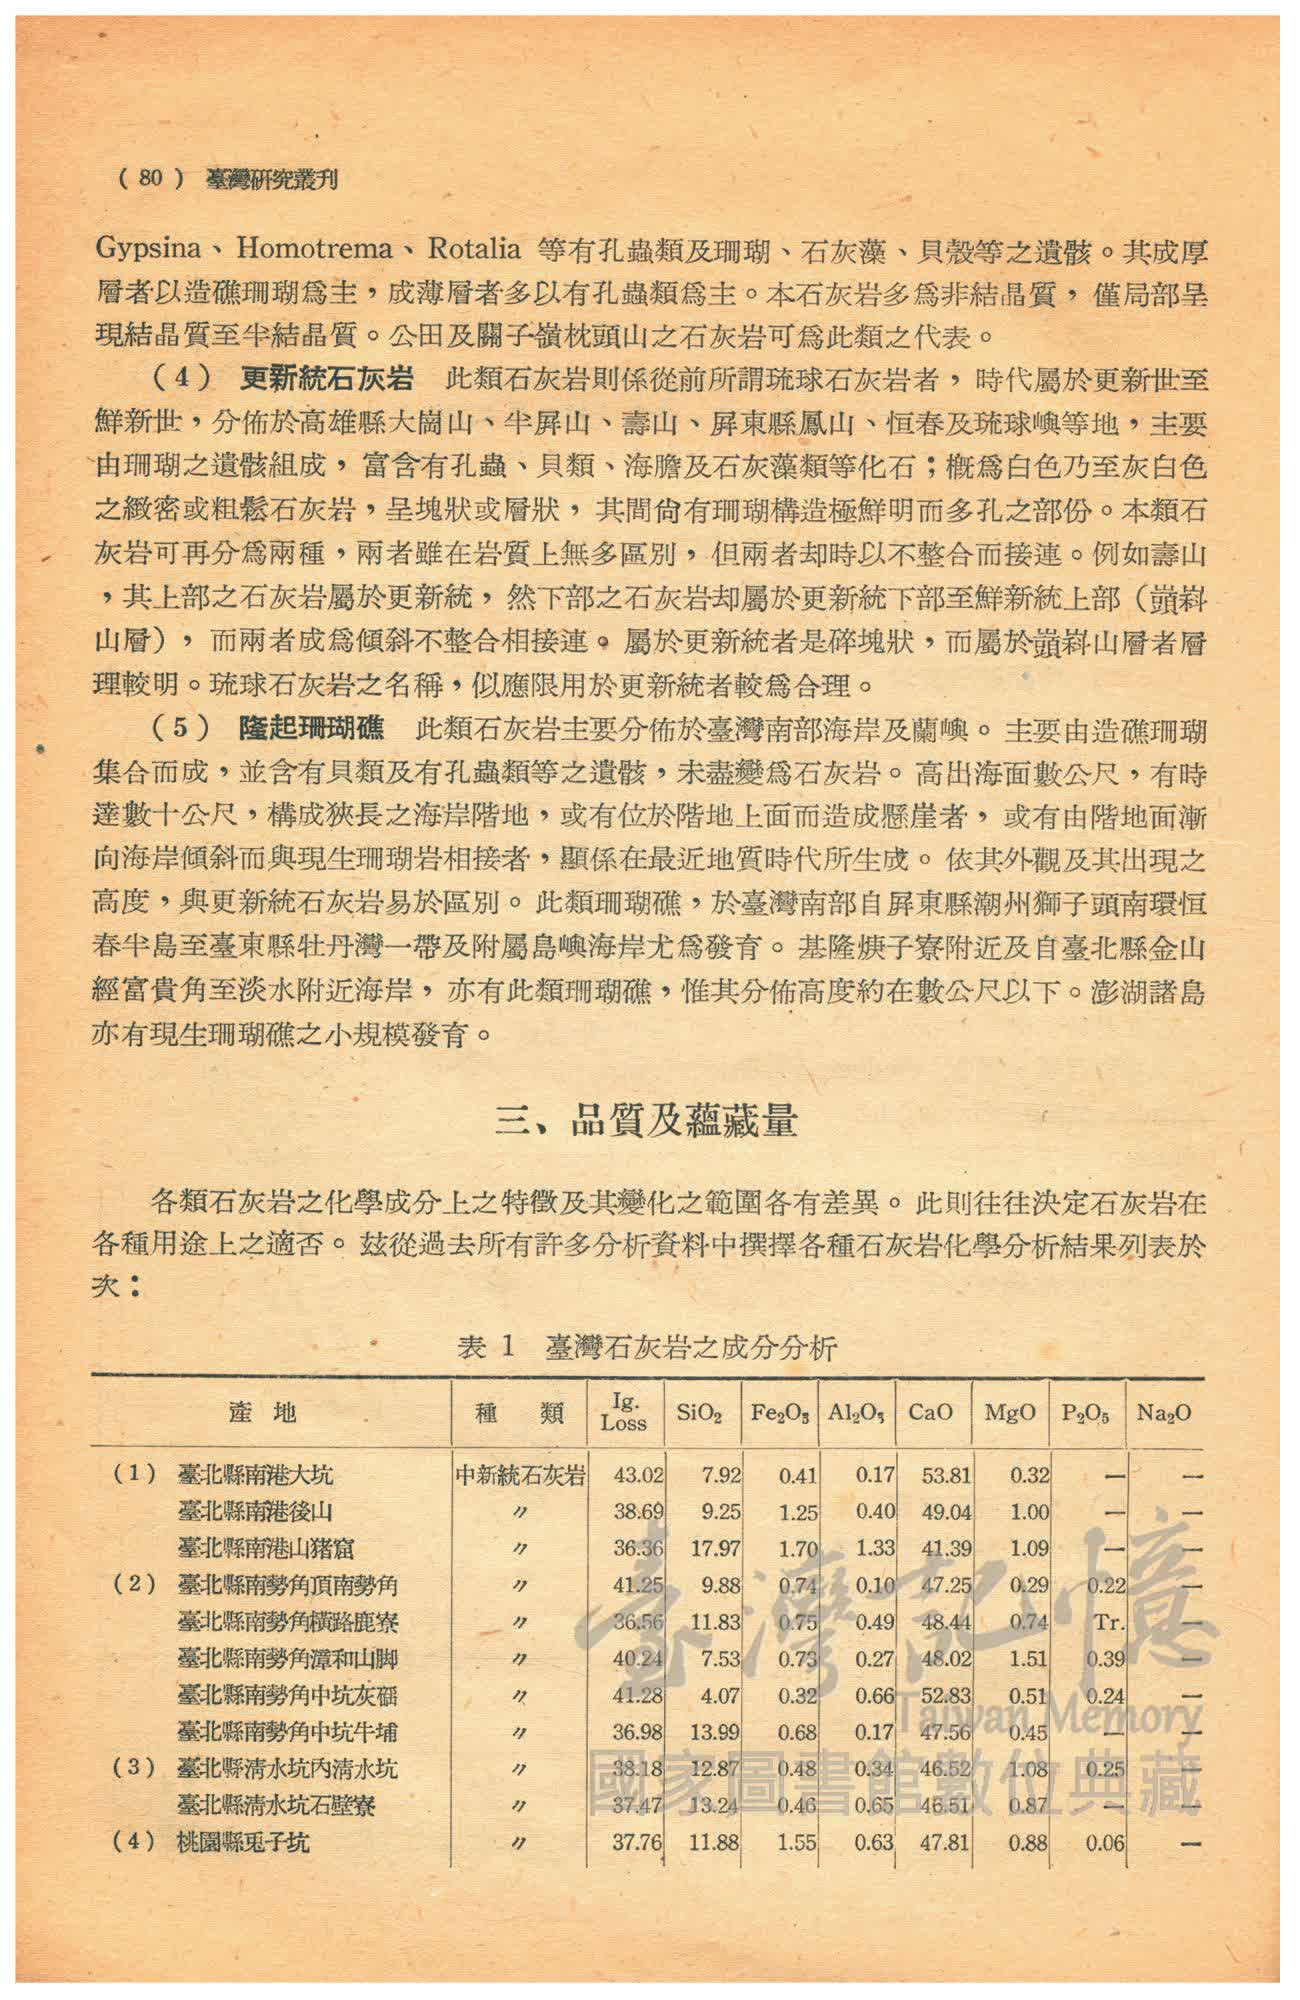 ( 80 ) 臺灣研究叢刊
Gypsina、Homotrema、Rotalia 等有孔蟲類及珊瑚、石灰藻、貝殼等之遺骸。其成厚
層者以造礁珊瑚爲主，成薄層者多以有孔蟲類爲主。本石灰岩多爲非結晶質，僅局部呈
現結晶質至半結晶質。公田及關子嶺枕頭山之石灰岩可爲此類之代表。
(4) 更新統石灰岩 此類石灰岩則係從前所謂琉球石灰岩者，時代屬於更新世至
鮮新世，分佈於高雄縣大崗山、半屏山、壽山、屏東縣鳳山、恒春及琉球嶼等地，主要
由珊瑚之遺骸組成，富含有孔蟲、貝類、海膽及石灰藻類等化石；概爲白色乃至灰白色
之緻密或粗鬆石灰岩，呈塊狀或層狀，其間尙有珊瑚構造極鮮明而多孔之部份。本類石
灰岩可再分爲兩種，兩者雖在岩質上無多區別，但兩者却時以不整合而接連。例如壽山
，其上部之石灰岩屬於更新統，然下部之石灰岩却屬於更新統下部至鮮新統上部（嵿嵙
山層），而兩者成爲傾斜不整合相接連。屬於更新統者是碎塊狀，而屬於嵿嵙山層者層
理較明。琉球石灰岩之名稱，似應限用於更新統者較爲合理。
(5) 隆起珊瑚礁 此類石灰岩主要分佈於臺灣南部海岸及蘭嶼。主要由造礁珊瑚
集合而成，並含有貝類及有孔蟲類等之遺骸，未盡變爲石灰岩。高出海面數公尺，有時
達數十公尺，構成狹長之海岸階地，或有位於階地上面而造成懸崖者，或有由階地面漸
向海岸傾斜而與現生珊瑚岩相接者，顯係在最近地質時代所生成。依其外觀及其出現之
高度，與更新統石灰岩易於區別。此類珊瑚礁，於臺灣南部自屏東縣潮州獅子頭南環恒
春半島至臺東縣牡丹灣一帶及附屬島嶼海岸尤爲發育。基隆㷗子寮附近及自臺北縣金山
經富貴角至淡水附近海岸，亦有此類珊瑚礁，惟其分佈高度約在數公尺以下。澎湖諸島
亦有現生珊瑚礁之小規模發育。
三、品質及蘊藏量
各類石灰岩之化學成分上之特徵及其變化之範圍各有差異。此則往往決定石灰岩在
各種用途上之適否。玆從過去所有許多分析資料中撰擇各種石灰岩化學分析結果列表於
次：
表 1 臺灣石灰岩之成分分析
產 地 種 類 Ig. Loss SiO₂ Fe₂O₃ Al₂O₃ CaO MgO P₂O₅ Na₂O
(1) 臺北縣南港大坑 中新統石灰岩 43.02 7.92 0.41 0.17 53.81 0.32 — —
臺北縣南港後山 〃 38.69 9.25 1.25 0.40 49.04 1.00 — —
臺北縣南港山猪窟 〃 36.36 17.97 1.70 1.33 41.39 1.09 — —
(2) 臺北縣南勢角頂南勢角 〃 41.25 9.88 0.74 0.10 47.25 0.29 0.22 —
臺北縣南勢角橫路鹿寮 〃 36.56 11.83 0.75 0.49 48.44 0.74 Tr. —
臺北縣南勢角潭和山脚 〃 40.24 7.53 0.73 0.27 48.02 1.51 0.39 —
臺北縣南勢角中坑灰磘 〃 41.28 4.07 0.32 0.66 52.83 0.51 0.24 —
臺北縣南勢角中坑牛埔 〃 36.98 13.99 0.68 0.17 47.56 0.45 — —
(3) 臺北縣淸水坑內淸水坑 〃 38.18 12.87 0.48 0.34 46.52 1.08 0.25 —
臺北縣淸水坑石壁寮 〃 37.47 13.24 0.46 0.65 46.51 0.87 — —
(4) 桃園縣兎子坑 〃 37.76 11.88 1.55 0.63 47.81 0.88 0.06 —
臺灣記憶
Taiwan Memory
國家圖書館數位典藏